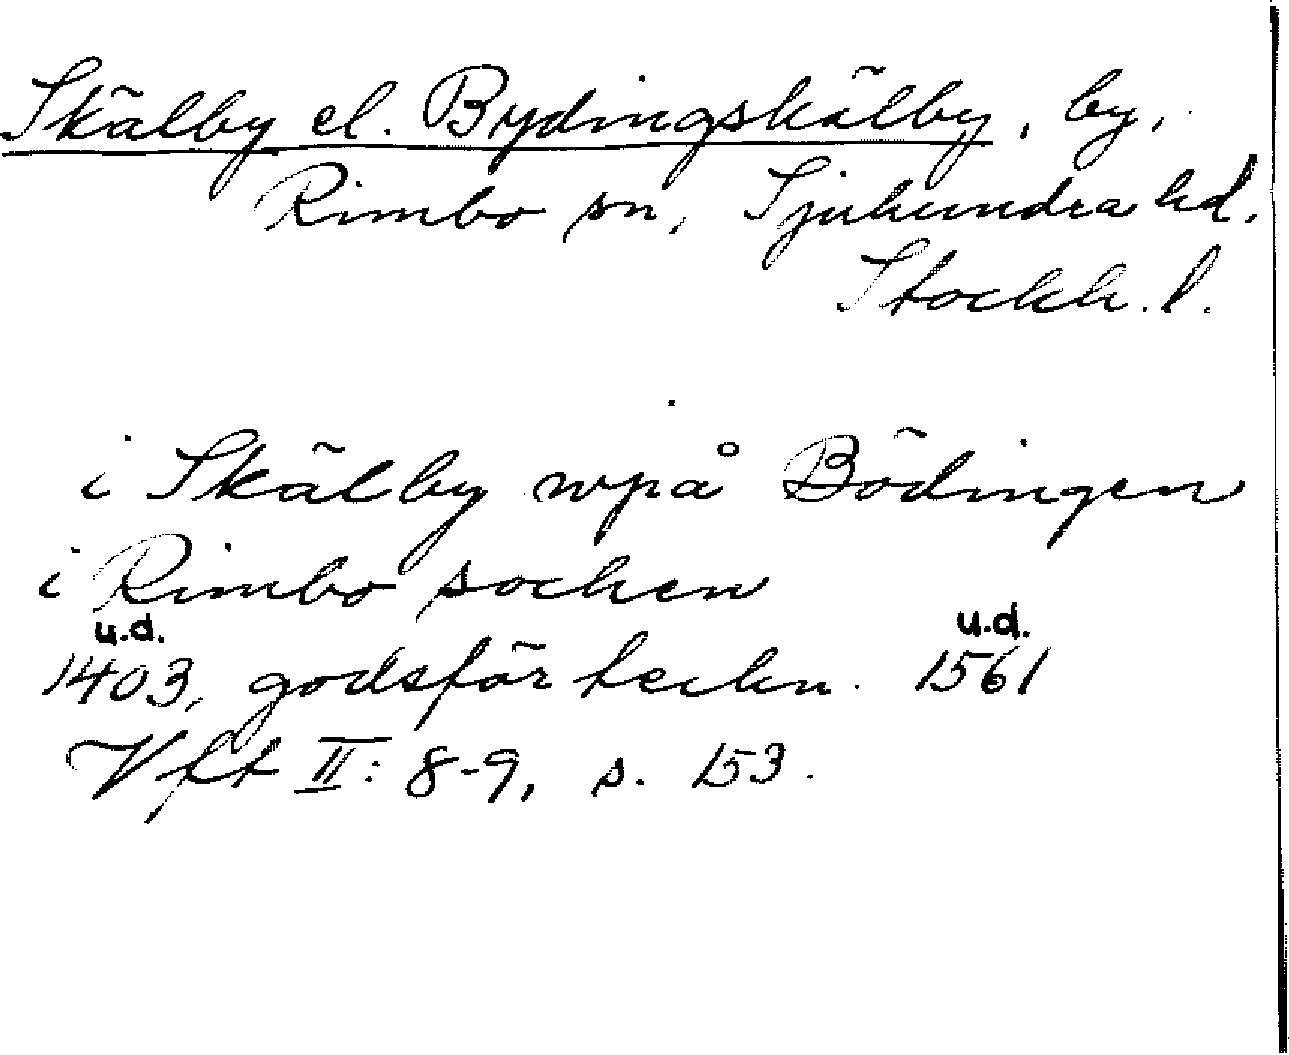 Skälby el. Bydingskälby, by,
Rimbo sn, Sjuhundra hd.
Stockh. l.
i Skälby wpå Bödingen
i Rimbo sochen
u.d. u.d.
1403, godsförteckn. 1561
Vft II: 8-9, s. 153.